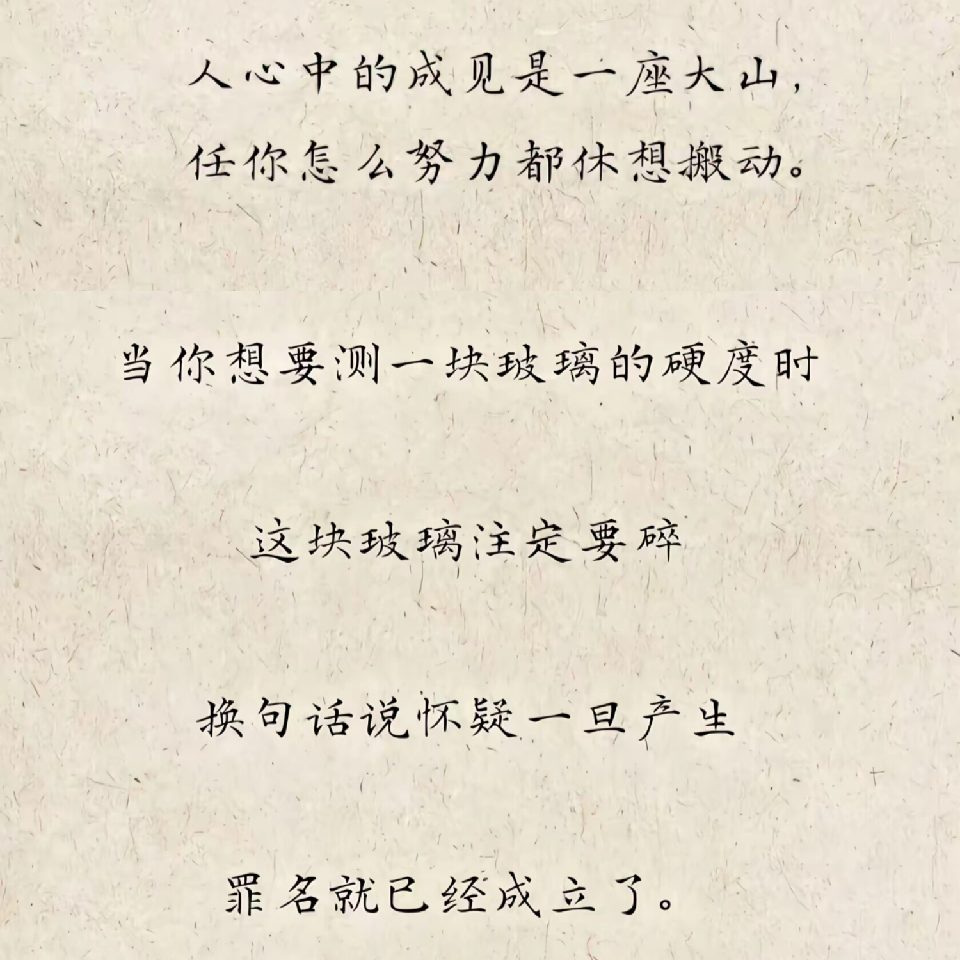 人心中的成见是一座大山，
任你怎么努力都休想搬动。
当你想要测一块玻璃的硬度时
这块玻璃注定要碎
换句话说怀疑一旦产生
罪名就已经成立了。